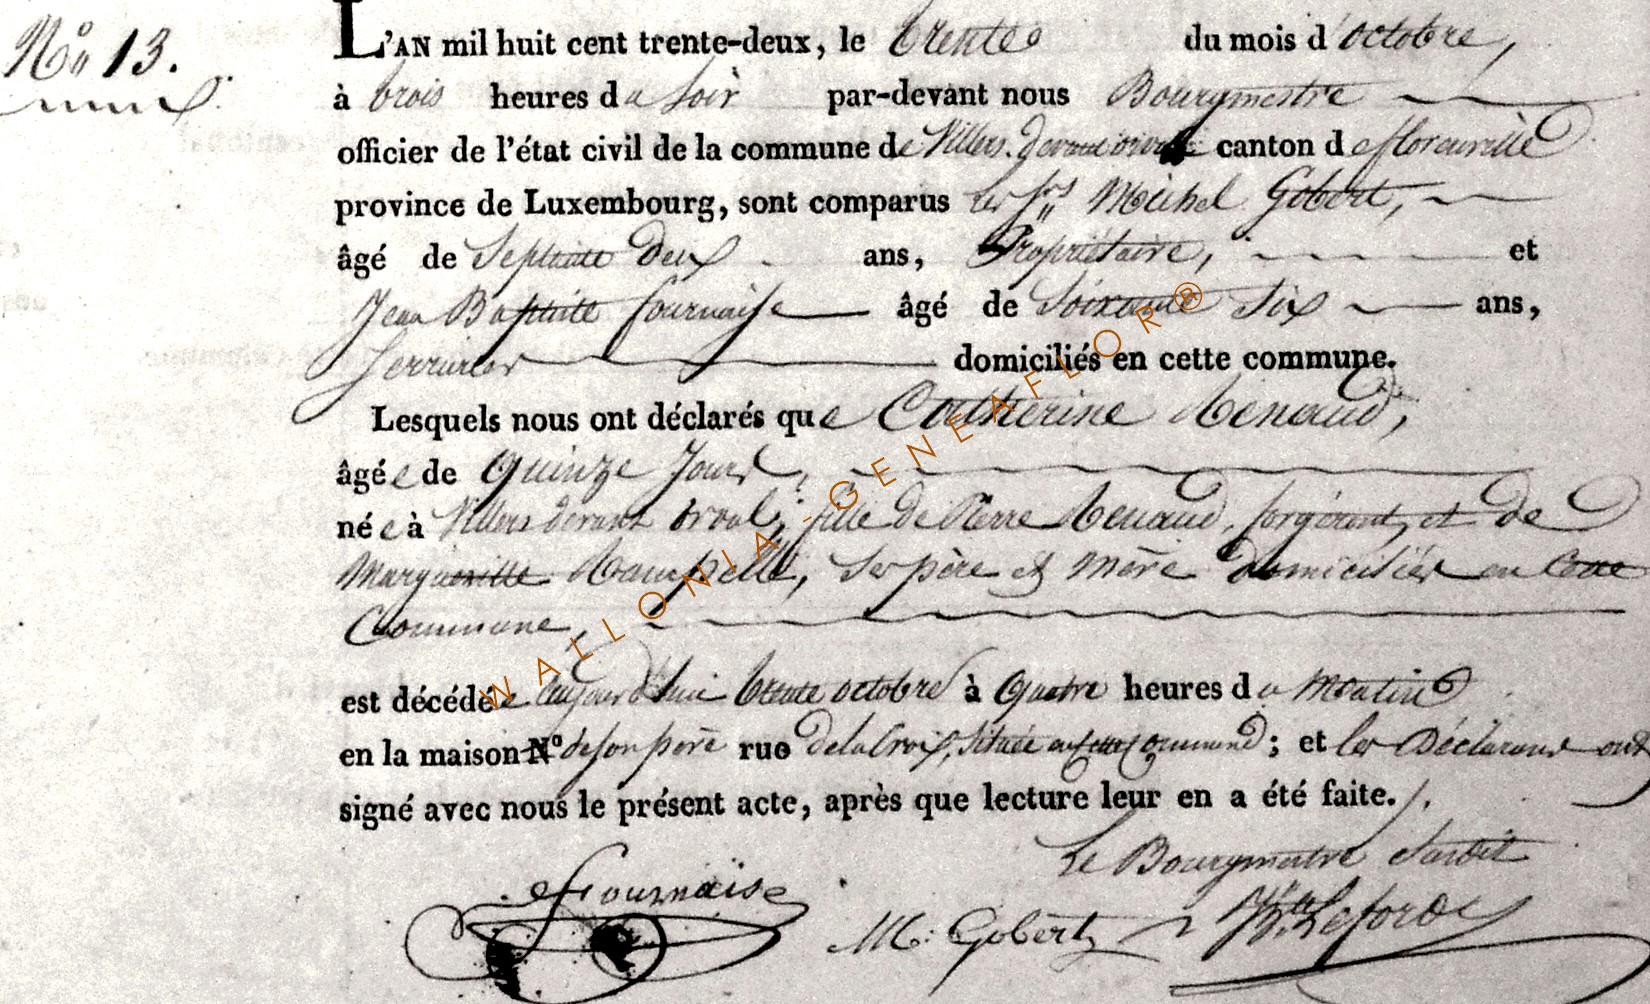 N° 13.
L'AN mil huit cent trente-deux, le trente du mois d'octobre,
à trois heures du soir par-devant nous Bourgmestre
officier de l'état civil de la commune de Villers devant orval canton de florenville
province de Luxembourg, sont comparus les Srs Michel Gobert,
âgé de Septante deux ans, Propriétaire, et
Jean Baptiste fournaise âgé de Soixante Six ans,
Serrurier domiciliés en cette commune.
Lesquels nous ont déclarés que Catherine Renaud,
âgée de quinze Jours,
née à Villers devant orval, fille de Pierre Renaud, forgeront, et de
Marguerite, Ses père et mère domiciliés en Cette
Commune,
est décédée aujourd'hui trente octobre à quatre heures du Matin
en la maison N° de son père rue de la Croix, située en cette Commune; et les Déclarans ont
signé avec nous le présent acte, après que lecture leur en a été faite./.
Le Bourgmestre
Fournaise
M: Gobert
WALLONIA-GENEAFLOR®